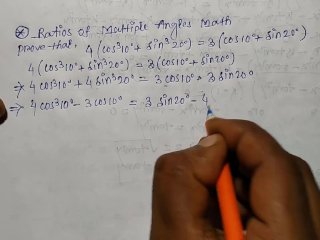 * Ratios of Multiple Angles Math
prove that. 4(cos³10°+sin³20°) = 3(cos10°+sin20°)
4(cos³10°+sin³20°) = 3(cos10°+sin20°)
⇒ 4cos³10° + 4sin³20° = 3cos10° + 3sin20°
⇒ 4cos³10° - 3cos10° = 3sin20° - 4